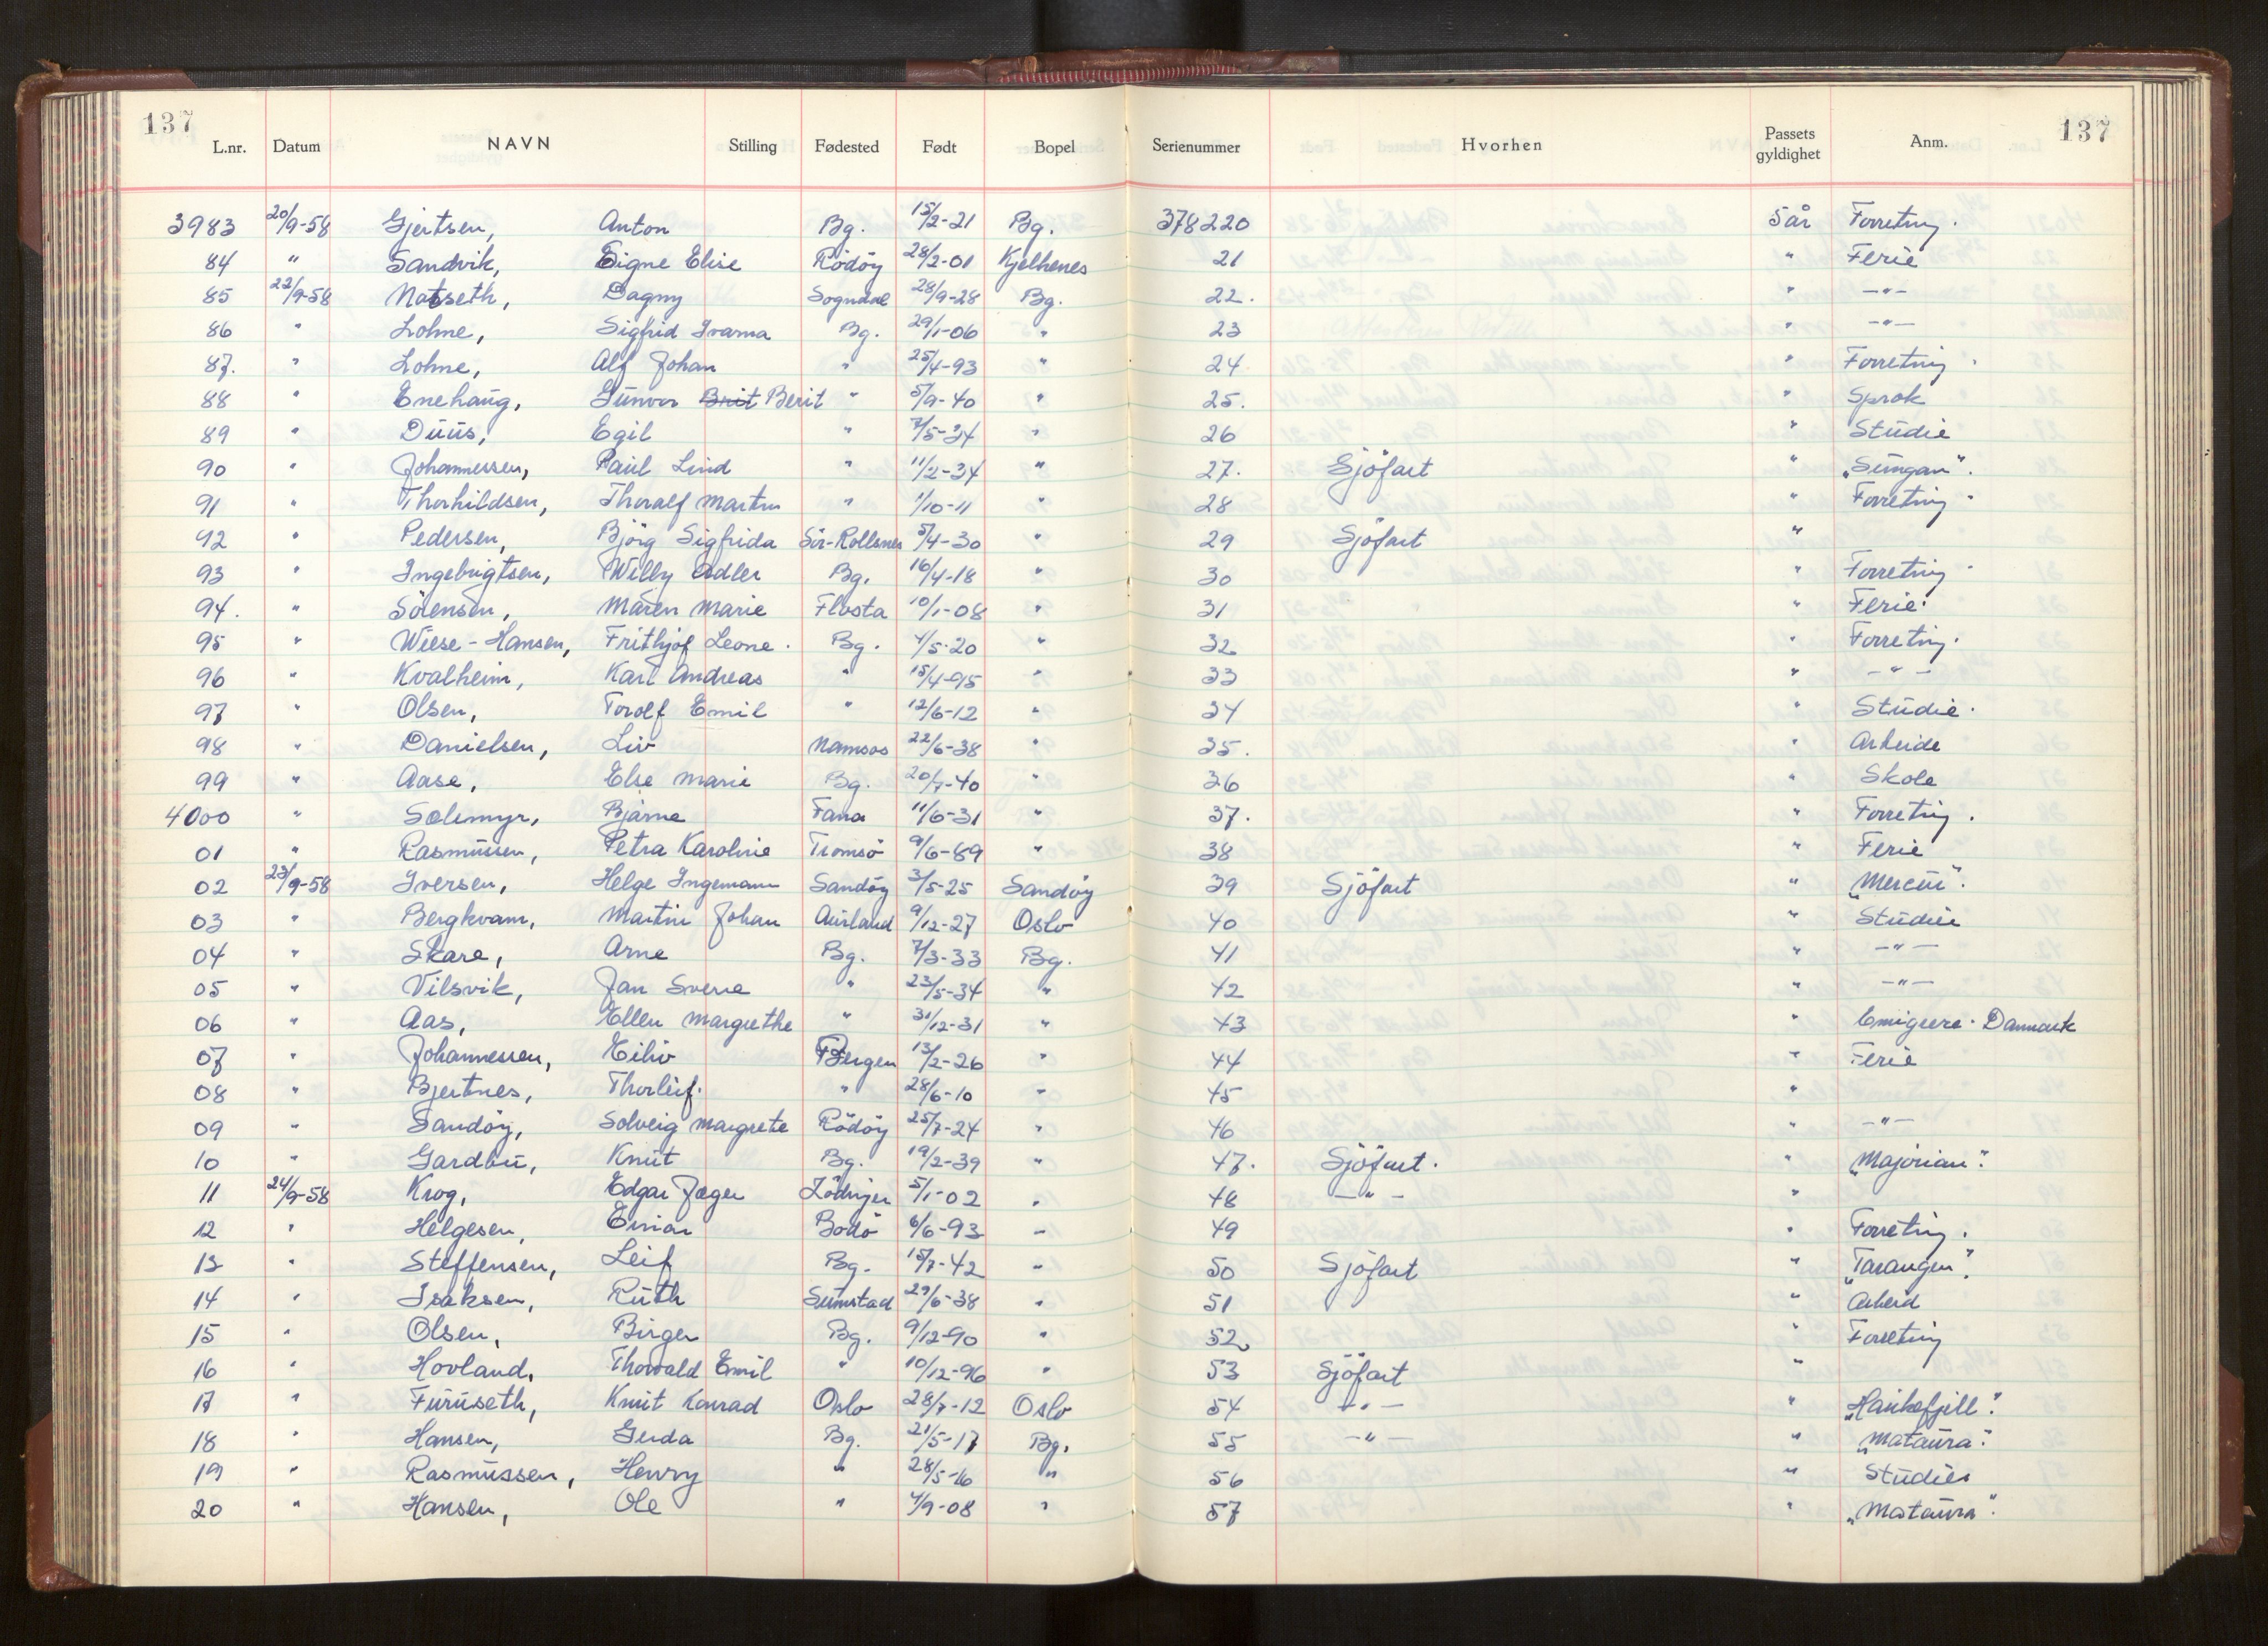 137 137
L.nr. Datum NAVN Stilling Fødested Født Bopel Serienummer Hvorhen Passets gyldighet Anm.
3983 20/9-58 Gjertsen, Anton Bg. 15/2-21 Bg. 378220 5 år Forretning.
84 " Sandvik, Signe Elise Rödöy 28/2-01 21 " Ferie
85 22/9-58 Natseth, Dagny Sogndal 28/9-28 Bg. 22. " -"-
86 " Lohne, Sigfrid Ivarna Bg. 29/1-06 " 23 " -"-
87. " Lohne, Alf Johan " 25/4-93 " 24 " Forretning.
88 " Enehaug, Gunvor Brit Berit " 5/9-40 " 25. " Språk
89 " Duus, Egil " 7/5-34 " 26 " Studie
90 " Johannessen, Paul Lind " 11/2-34 " 27. Sjöfart " „Sungan".
91 " Thorhildsen, Thoralf Martin " 1/10-11 " 28 " Forretning.
92 " Pedersen, Björg Sigfrida Sör-Rollsnes 5/4-30 " 29 Sjöfart "
93 " Ingebrigtsen, Willy Adler Bg. 16/4-18 " 30 " Forretning.
94. " Sörensen, Maren Marie Flosta 10/1-08 " 31 " Ferie.
95 " Wiese-Hansen, Frithjof Leone. Bg. 4/5-20 " 32 " Forretning.
96 " Kvalheim, Karl Andreas " 15/4-95 " 33 " -"-
97 " Olsen, Torolf Emil " 12/6-12 " 34 " Studie.
98 " Danielsen, Liv Namsos 22/6-38 " 35. " Arbeide
99 " Aase, Else Marie Bg. 20/7-40 " 36 " Skole
4000 " Solemyr, Bjarne Fana 11/6-31 " 37. " Forretning.
01 " Rasmussen, Petra Karoline Tromsö 9/6-89 " 38 " Ferie
02 23/9-58 Iversen, Helge Ingemann Sandöy 3/5-25 Sandöy 39 Sjöfart " „Mercur".
03 " Bergkvam, Martin Johan Aurland 9/12-27 Oslo 40 " Studie
04 " Skare, Arne Bg. 7/3-33 Bg. 41 " -"-
05 " Vilsvik, Jan Sverre " 23/5-34 " 42 " -"-
06 " Aas, Ellen Margrethe " 31/12-31 " 43 " Emigrere. Danmark
07 " Johannessen, Eiliv Bergen 13/2-26 " 44 " Ferie
08 " Bjertnes, Thorleif. " 28/6-10 " 45 "
09 " Sandöy, Solveig Margrete Rödöy 25/7-24 " 46 " -"-
10 " Gardbu, Knut Bg. 19/2-39 " 47. Sjöfart. " „Majorian".
11 24/9-58 Krog, Edgar Jæger Lödingen 5/1-02 " 48 -"- "
12 " Helgesen, Einar Bodö 6/6-93 " 49 " Forretning.
13 " Steffensen, Leif Bg. 15/7-42 " 50 Sjöfart " „Taranger".
14 " Isaksen, Ruth Sumstad 29/6-38 " 51 " Arbeid
15 " Olsen, Birger Bg. 9/12-90 " 52 " Forretning
16 " Hovland, Thorvald Emil " 10/12-96 " 53 Sjöfart "
17 " Furuseth, Knut Konrad Oslo 28/7-12 Oslo 54 -"- " „Haukefjell".
18 " Hansen, Gerda Bg. 21/5-17 Bg. 55 -"- " „Mataura".
19 " Rasmussen, Henry " 28/5-16 " 56 " Studier
20 " Hansen, Ole " 4/9-08 " 57 " „Mataura".